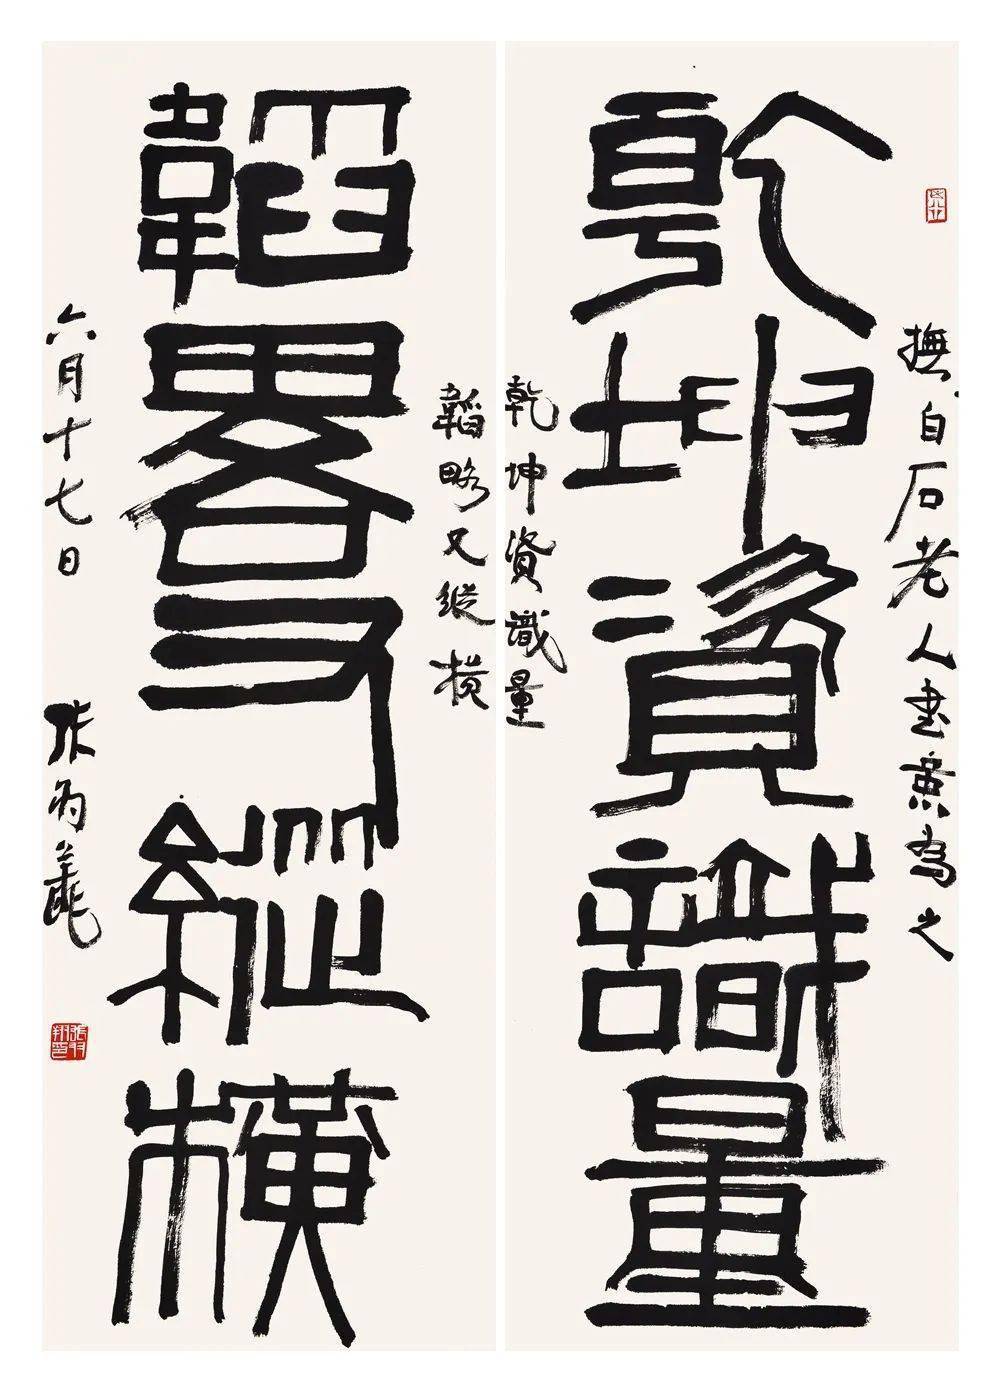 撫白石老人書意為之
乾坤資識量
乾坤資識量
韜略又縱橫
韜畧又縱橫
六月十七日 張羽翔
張羽翔印